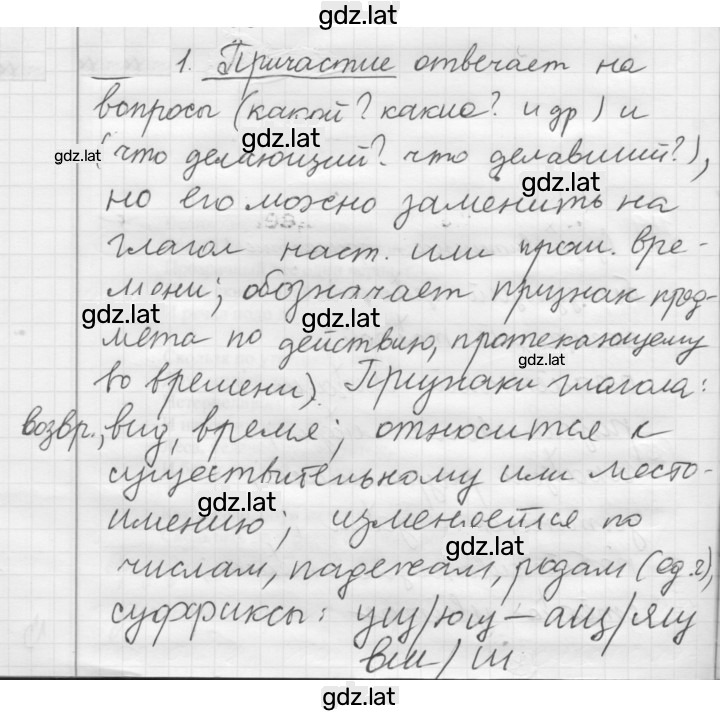 gdz.lat
1. Причастие отвечает на
вопросы (какой? какие? и др) и
gdz.lat
gdz.lat
(что делающий? что делавший?),
gdz.lat
но его можно заменить на
глагол наст. или прош. вре-
мени; обозначает признак пред-
gdz.lat
gdz.lat
мета по действию, протекающему
gdz.lat
во времени). Признаки глагола:
возвр., вид, время; относится к
существительному или место-
gdz.lat
имению; изменяется по
gdz.lat
числам, падежам, родам (ед.ч),
суффиксы: ущ/ющ – ащ/ящ
вш/ш
gdz.lat